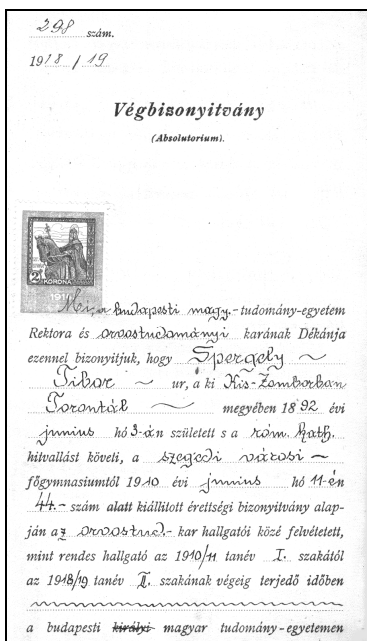 298 szám.
1918/19
Végbizonyitvány
(Absolutorium).
2 KORONA
Mi, a budapesti magy.-tudomány-egyetem
Rektora és orvostudományi karának Dékánja
ezennel bizonyitjuk, hogy Spergely ~
Tibor ~ ur, a ki Kis-Zomborban
Torontál ~ megyében 1892 évi
junius hó 3-án született s a róm. kath.
hitvallást követi, a szegedi városi ~
főgymnasiumtól 1910 évi junius hó 11-én
44.- szám alatt kiállított érettségi bizonyitvány alap-
ján az orvostud.- kar hallgatói közé felvétetett,
mint rendes hallgató az 1910/11 tanév I. szakától
az 1918/19 tanév II. szakának végeig terjedő időben
a budapesti királyi magyar tudomány-egyetemen